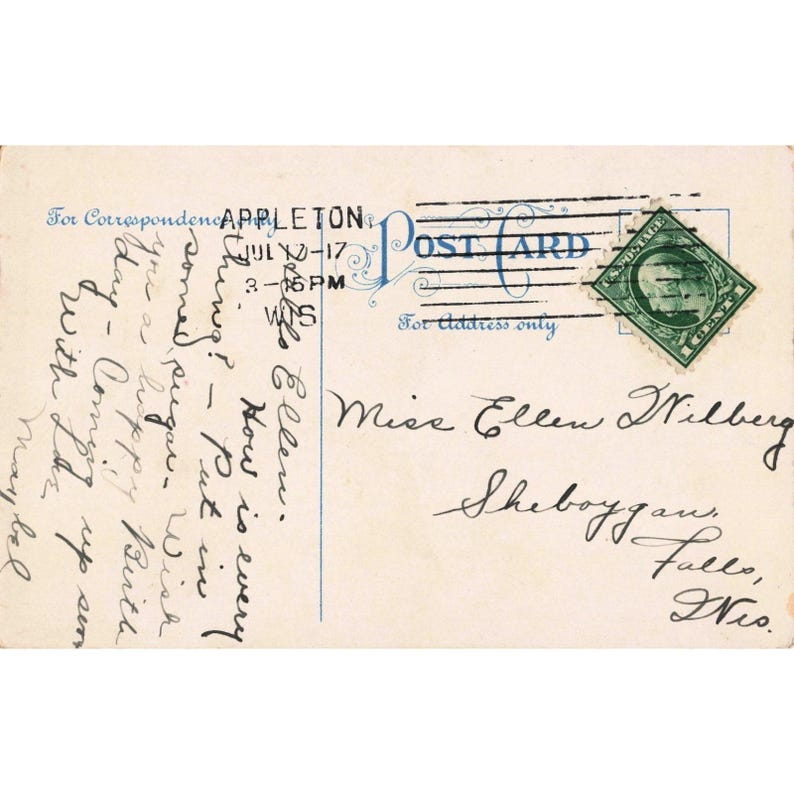 For Correspondence only
POST CARD
For Address only
APPLETON,
JUL 17
3- PM
WIS
U.S. POSTAGE
1 CENT 1
Hello Ellen:
How is every
thing? - Put in
some sugar - Wish
you a happy Birth
day - Coming up soon
With Love
Maybel
Miss Ellen Wilberg
Sheboygan
Falls,
Wis.